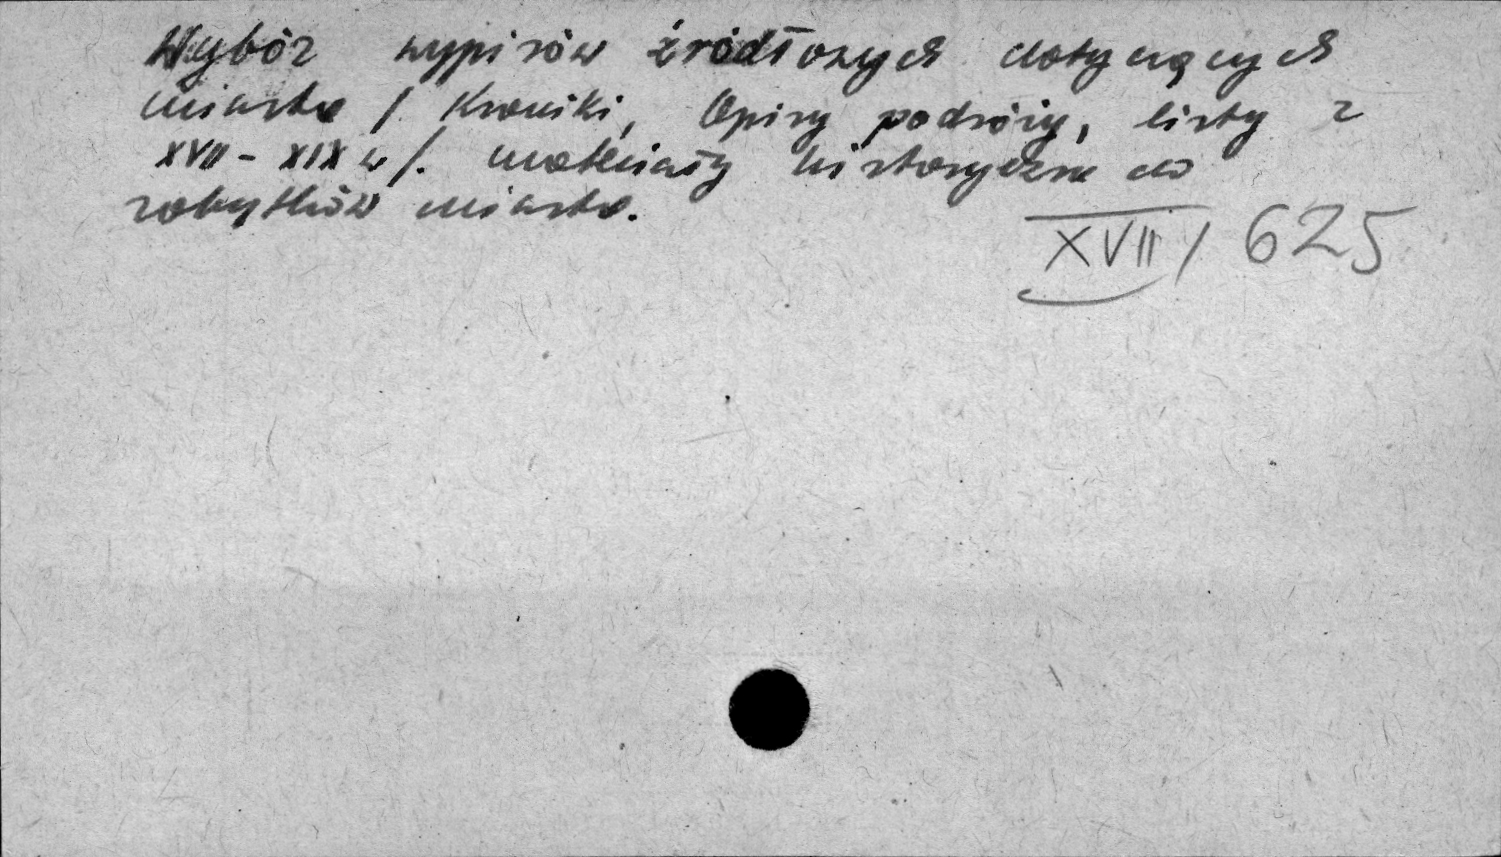 Wybór wypisów źródłowych dotyczących
miasta / Kroniki, Opisy podróży, listy z
XVII - XIX w/. materiały historyczne do
zabytków miasta.
XVII / 625